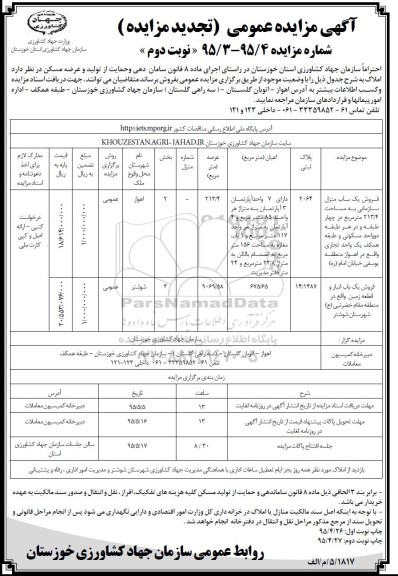 آگهی مزایده عمومی (تجدید مزایده)
شماره مزایده ۹۵/۴-۹۵/۳ «نوبت دوم»
وزارت جهاد کشاورزی
سازمان جهاد کشاورزی استان خوزستان
احتراماً سازمان جهاد کشاورزی استان خوزستان در راستای اجرای ماده ۸ قانون سامان دهی وحمایت از تولید و عرضه مسکن در نظر دارد
املاک به شرح جدول ذیل را با وضعیت موجود از طریق برگزاری مزایده عمومی بفروش برساند متقاضیان می توانند، جهت دریافت اسناد مزایده
وکسب اطلاعات بیشتر به آدرس اهواز - اتوبان گلستان - سه راهی گلستان - سازمان جهاد کشاورزی خوزستان - طبقه همکف - اداره
امور پیمانها و قراردادهای سازمان مراجعه نمایند.
تلفن تماس ۶۱ - ۳۳۳۵۹۸۵۲ - ۰۶۱ داخلی ۱۲۳ و ۱۲۱
آدرس پایگاه ملی اطلاع رسانی مناقصات کشور http:iets.mporg.ir
سایت سازمان جهاد کشاورزی خوزستان KHOUZESTAN.AGRI-JAHAD.IR
موضوع مزایده
پلاک ثبتی
اعیان (متر مربع)
عرصه (متر مربع)
شماره منزل
بخش
نام شهرستان محل وقوع ملک
روش برگزاری مزایده
مبلغ تضمین به ریال
قیمت پایه به ریال
مدارک لازم برای اخذ دعوتنامه و اسناد مزایده
فروش یک باب منزل سازمانی به مساحت ۲۱۳/۴ مترمربع در چهار طبقه و در هر طبقه دوواحد مسکونی و طبقه همکف یک واحد تجاری واقع در اهواز منطقه یوسفی خیابان امام (ره)
۲۰۶۴
۲۱۳/۴
-
۲
اهواز
عمومی
درخواست کتبی - ارائه اصل و کپی کارت ملی
فروش یک باب انبار و قطعه زمین واقع در منطقه مقام خضرنبی (ع) شهرستان شوشتر
۱۴/۱۴۸۷
۶۷۵/۶۵
۹۰۶۹/۵۸
۲
شوشتر
عمومی
مزایده گزار:
سازمان جهاد کشاورزی خوزستان
دبیرخانه کمیسیون معاملات
اهواز - اتوبان گلستان - سه راهی گلستان - سازمان جهاد کشاورزی خوزستان - طبقه همکف
تلفن ۶۱ - ۳۳۳۵۹۸۵۲ - ۰۶۱ داخلی ۱۲۳-۱۲۱
زمان بندی برگزاری مزایده
شرح
ساعت
تاریخ
آدرس
مهلت دریافت اسناد مزایده از تاریخ انتشار آگهی در روزنامه لغایت
۱۳
۹۵/۵/۵
دبیرخانه کمیسیون معاملات
مهلت تحویل پاکات پیشنهاد قیمت از تاریخ انتشار آگهی در روزنامه لغایت
۱۳
۹۵/۵/۱۶
دبیرخانه کمیسیون معاملات
جلسه افتتاح پاکات مزایده
۸/۳۰
۹۵/۵/۱۷
سالن جلسات سازمان جهاد کشاورزی استان
بازدید از املاک مورد نظر همه روز بجز ایام تعطیل ساعات اداری با هماهنگی مدیریت جهاد کشاورزی شهرستان شوشتر و مدیریت امور اداری، رفاه و پشتیبانی
- برابر بند ۳ الحاقی ذیل ماده ۸ قانون ساماندهی و حمایت از تولید مسکن کلیه هزینه های تفکیک، افراز، نقل و انتقال و صدور سند مالکیت به عهده
خریدار می باشد.
- با توجه به اینکه اصل سند مالکیت منازل یا املاک در خزانه داری کل وزارت امور اقتصادی و دارایی نگهداری می شود پس از انجام مراحل قانونی و
تحویل سند از مرجع مذکور مراحل نقل و انتقال در دفترخانه انجام خواهد شد.
چاپ نوبت اول: ۹۵/۴/۲۶
چاپ نوبت دوم: ۹۵/۴/۲۷
روابط عمومی سازمان جهاد کشاورزی خوزستان
۵/۱۸۱۷/م/الف
ParsNamadData